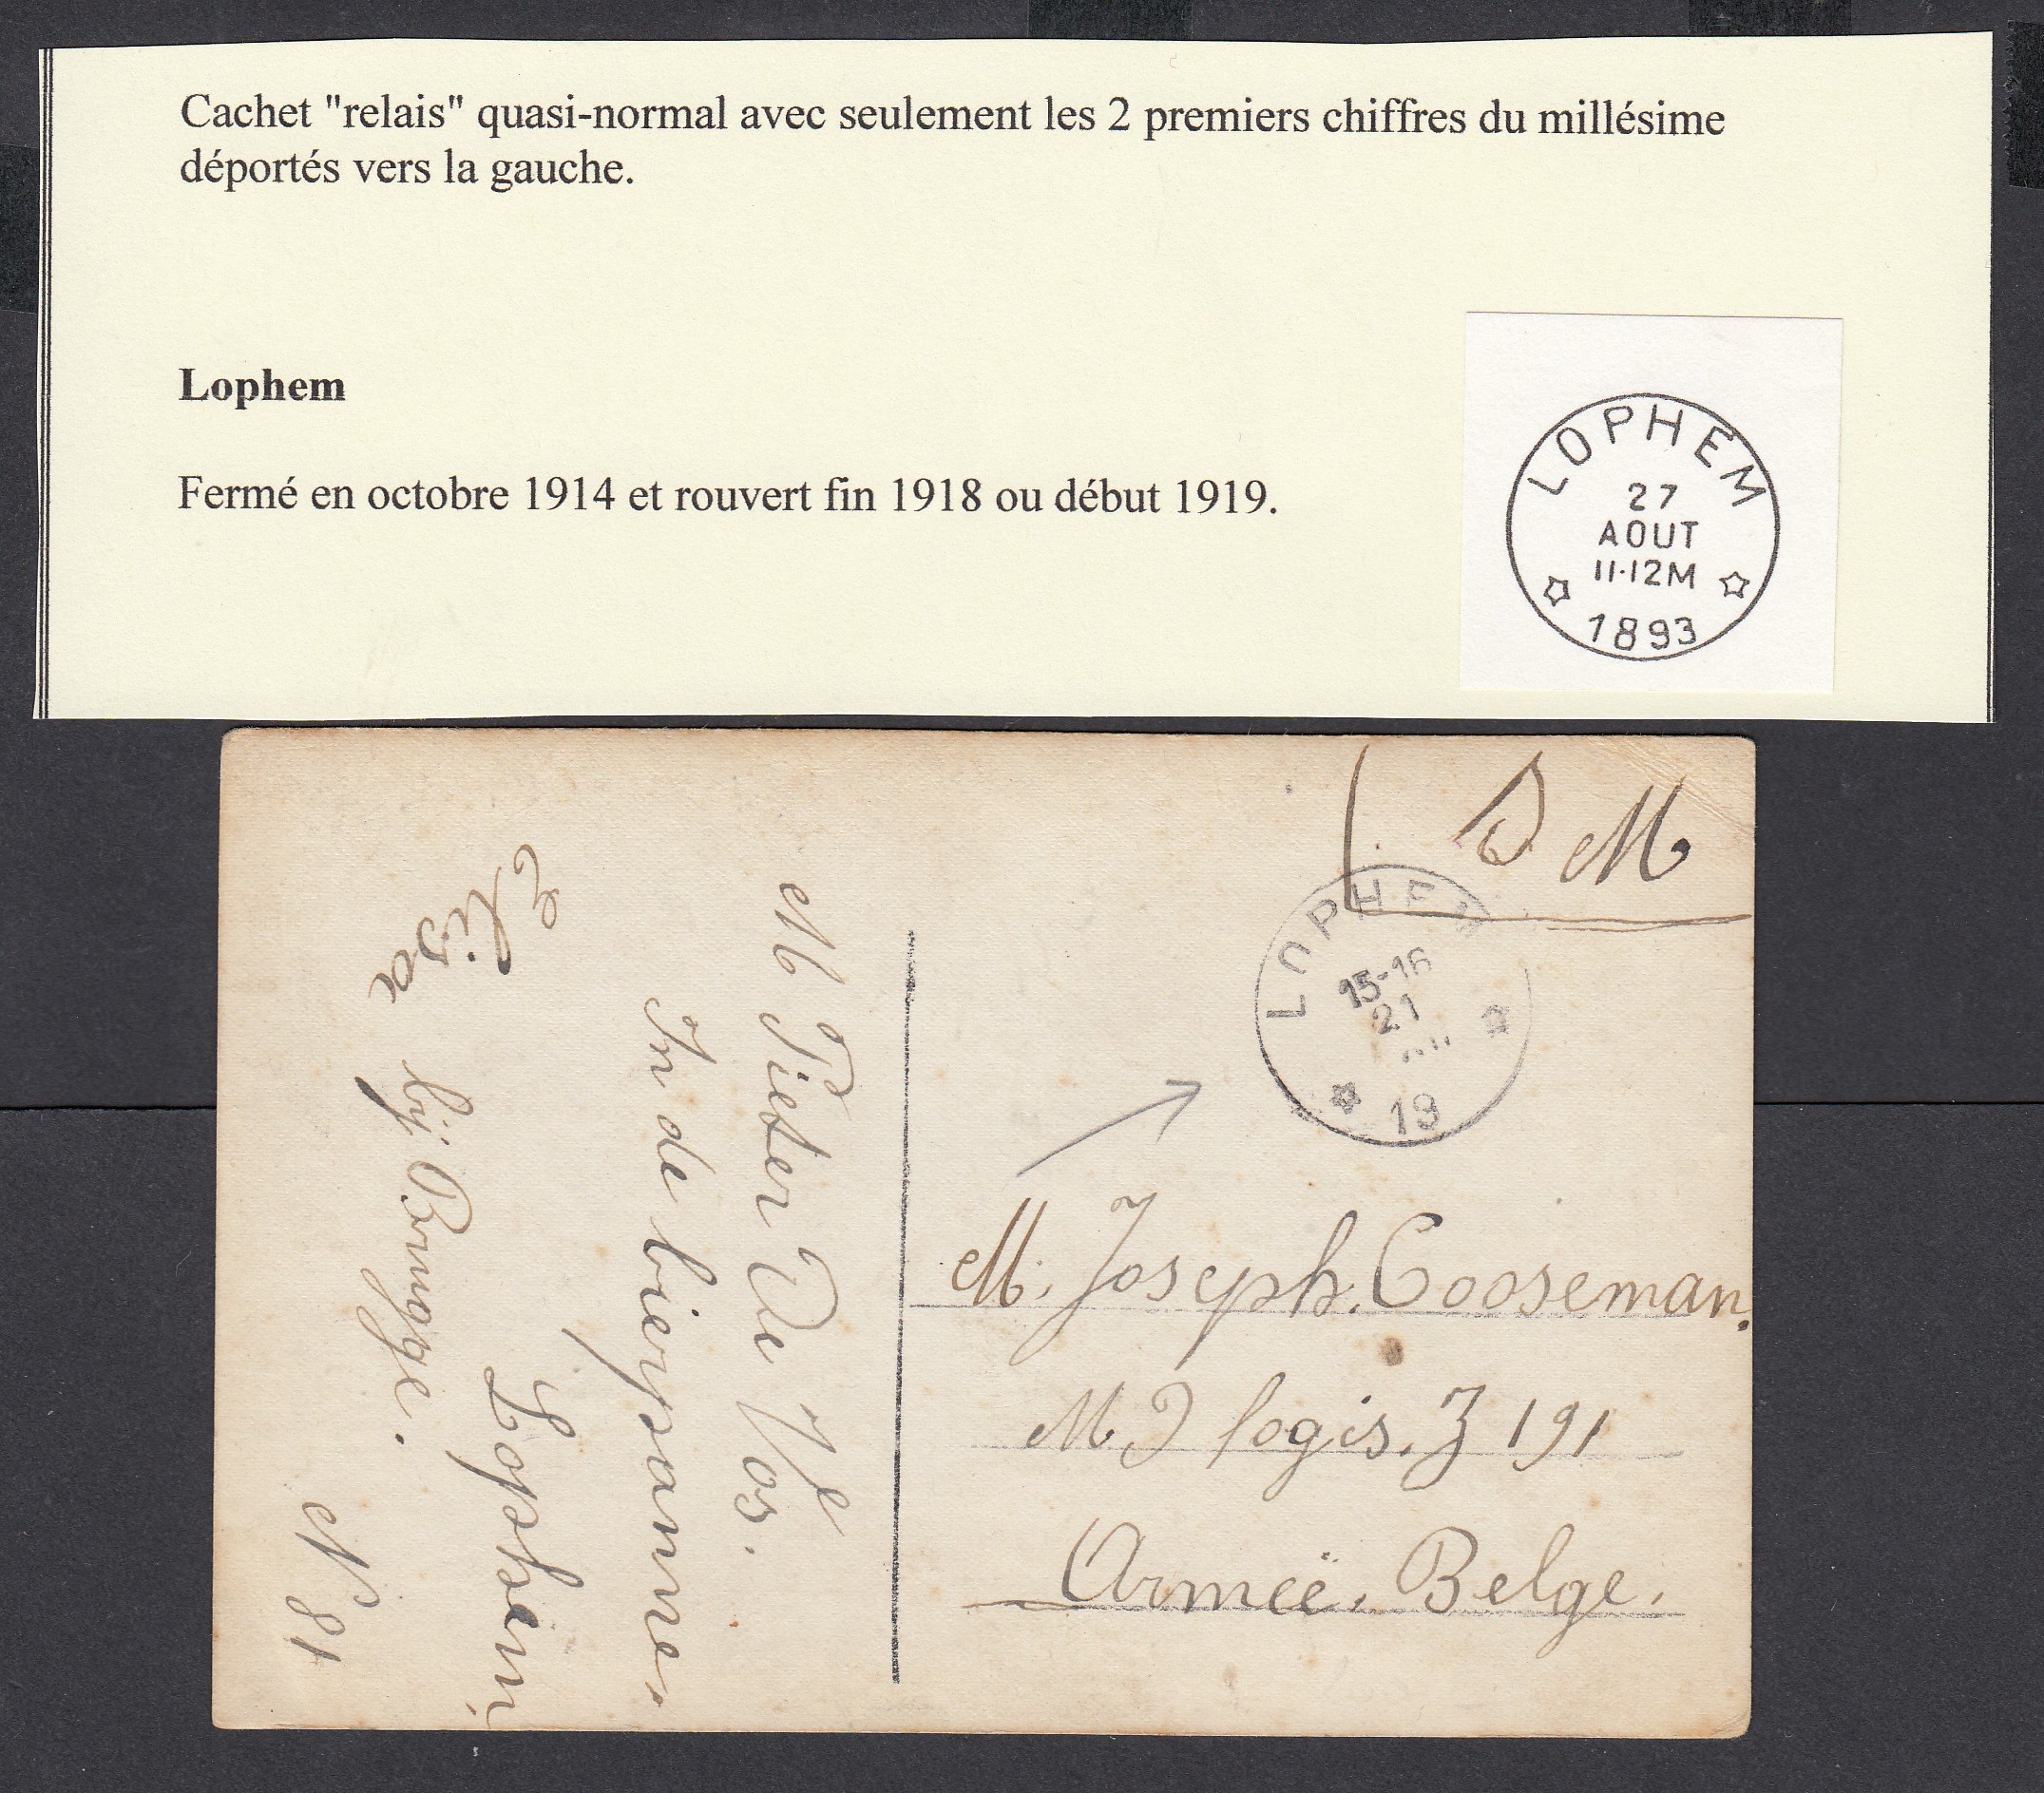 Cachet "relais" quasi-normal avec seulement les 2 premiers chiffres du millésime
déportés vers la gauche.
Lophem
Fermé en octobre 1914 et rouvert fin 1918 ou début 1919.
LOPHEM
27
AOUT
11-12M
1893
S M
LOPHEM
15-16
21
19
M. Joseph. Cooseman.
M D logis. Z 191
Armeë. Belge.
M Pieter De Vos.
In de bierpanne.
Lophem
Elisa bij Brugge.
N 81